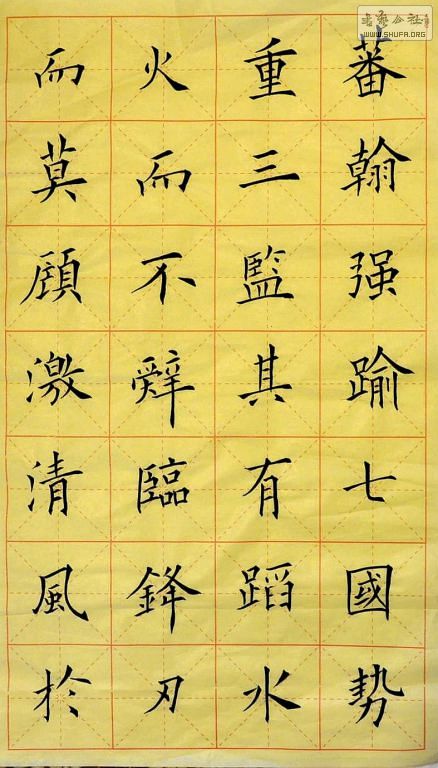 蕃翰强踰七國勢
重三監其有蹈水
火而不辭臨鋒刃
而莫顧激清風於
书艺公社
WWW.SHUFA.ORG